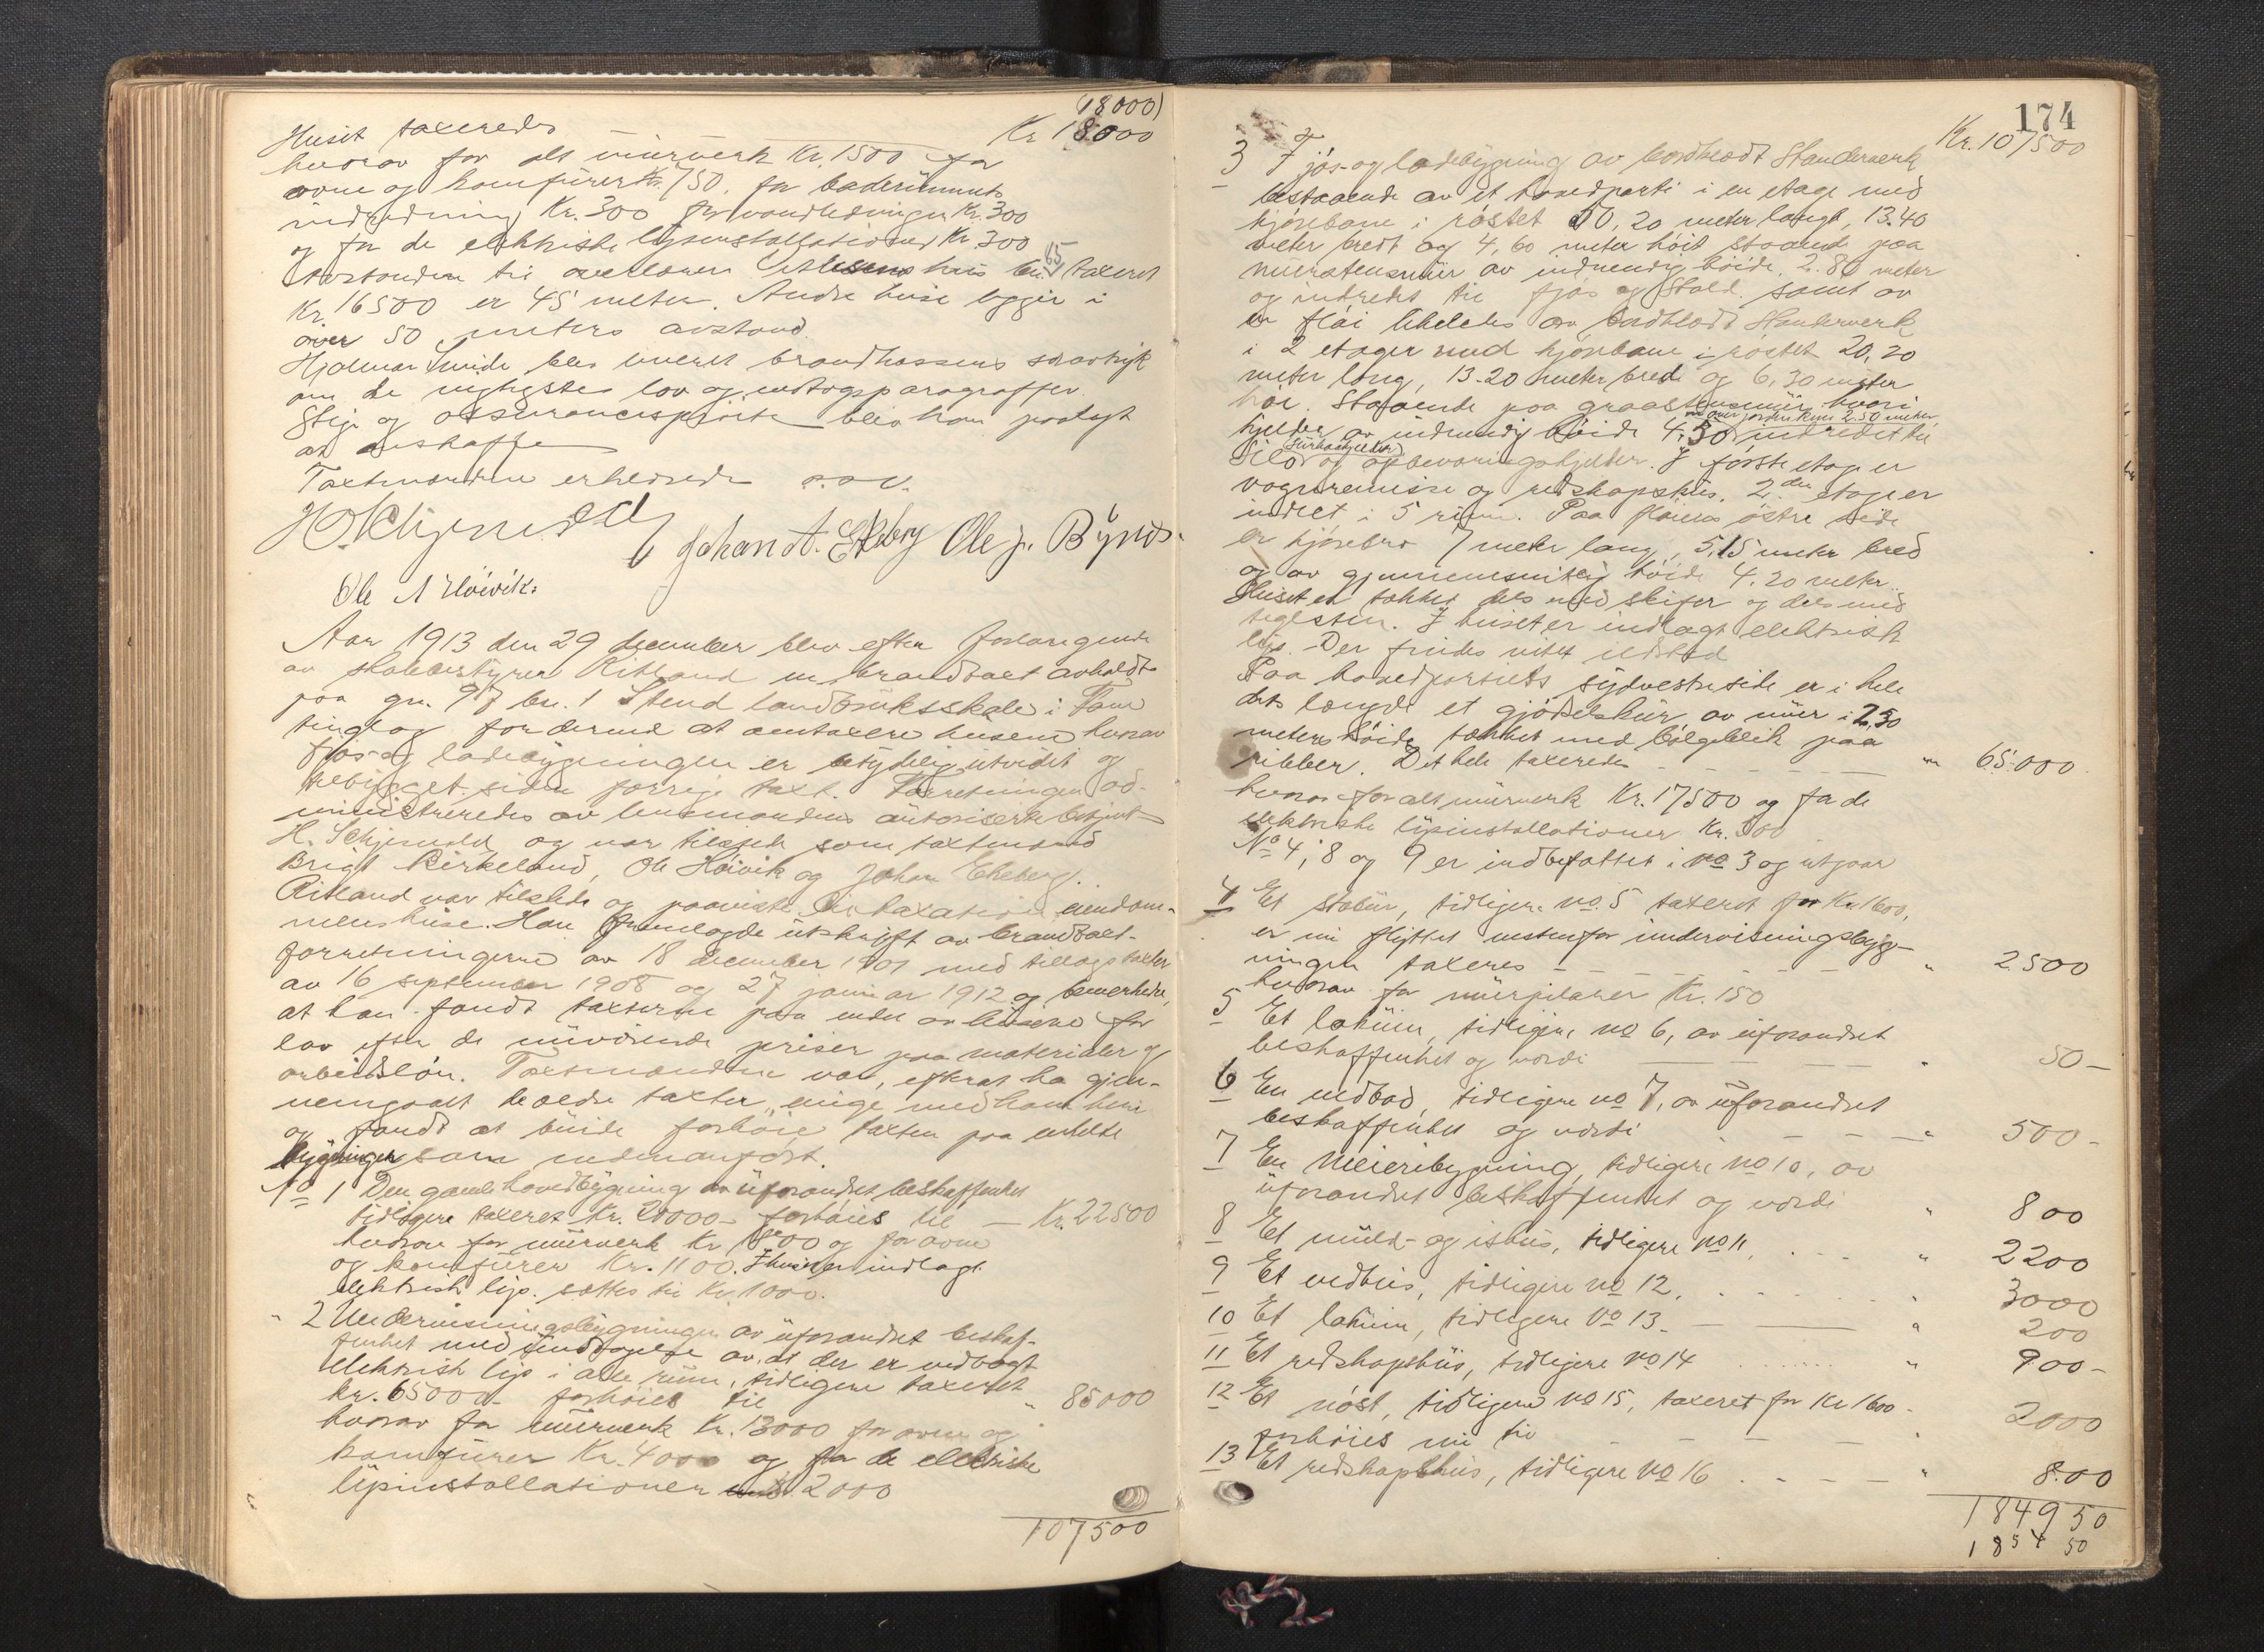 (18000)
Huset taxeredes Kr. 18000
hvorav for alt mürverk Kr. 1500 for
ovne og komfürer Kr. 750. for baderümmets
indredning Kr. 300 for vandledningen Kr. 300
og for de elektriske lysinstallationer Kr. 300
Avstanden til hus bn. 65 taxeret
Kr. 16500 er 45 meter. Andre huse ligger i
over 50 meters avstand.
Hjalmar Smide blev leveret brandkassens særtryk
om de vigtigste lov og utdragsparagraffer.
Stige og assurancespröite blev han paalagt
at anskaffe
Taxtmændene erholdt
H. Schjenald Johan A. Ekeberg Ole J. Byrn
Ole N Höivik.
Aar 1913 den 29 december blev efter forlangende
av skolebestyrer Ritland en brandtaxt avholdt
paa gn. 97 bn. 1 Stend landbruksskole i Fane
tinglag for derved at omtaxere husene hvorav
fjös- og ladebygningen er betydelig utvidet og
tilbygget siden forrige taxt. Forretningen ad-
ministreredes av lensmandens autoriserte betjent
H. Schjenald og var tilstede som taxtmænd
Brigt Birkeland, Ole Höivik og Johan Ekeberg.
Ritland var tilstede og paaviste til taxation eiendom-
menshuse. Han fremlagde utskrift av brandtaxt-
forretningerne av 18 december 1901 med tillægstaxter
av 16 september 1908 og 27 januar 1912 og bemerkede,
at han fandt taxterne paa endel av husene for
lav efter de nüværende priser paa materialer og
arbeidslön. Taxtmændene var, efterat ha gjen-
nemgaat de ældre taxter, enige med ham heri
og fandt at bürde forhöie taxten paa enkelte
bygninger som nedenanfört.
No 1 Den gamle hovedbygning av uforandret beskaffenhet
tidligere taxeret Kr. 20000 forhöies til — Kr. 22500
hvorav for mürverk Kr. 1800 og for ovne
og komfürer Kr. 1100. I huset er indlagt
elektrisk lys. sættes til Kr. 1000.
" 2 Undervisningsbygningen av uforandret beskaf-
fenhet med undtagelse av, at der er indlagt
elektrisk lys i alle rüm, tidligere taxeret
kr. 65000 forhöies til " 85000
hvorav for mürverk Kr. 13000 for ovne og
komfürer Kr. 4000 og for de elektriske
lysinstallationer 2000
107500
174
Kr. 107500
3 Fjös- og ladebygning av bordklædt Standerverk
bestaaende av et hovedparti i en etage med
kjörebane i röstet 50,20 meter langt, 13.40
meter bredt og 4,60 meter höit staaende paa
mürstensmür av indvendig höide 2.80 meter
og indredet til fjös og Stald samt av
en flöi likeledes av bordklædt Standerverk
i 2 etager med kjörebane i röstet 20,20
meter lang, 13.20 meter bred og 6,30 meter
höi. Staaende paa graastensmür hvori
over jorden kun 2.50 meter
kjelder av indvendig höide 4,50 indredet til
(Surhökjelder)
Silo og opbevaringskjelder. I förste etage er
vognremisse og redskapshus. 2den etage er
indlet i 5 rüm. Paa flöiens östre side
er kjörebro 7 meter lang, 5,15 meter bred
og av gjennemsnitlig höide 4.20 meter.
Huset er tækket dels med skifer og dels med
teglsten. I huset er indlagt elektrisk
lys. Der findes intet ildsted
Paa hovedpartiets sydvestre side er i hele
dets længde et gjödselskür av mür i 2,30
meters höide tækket med bölgeblik paa
ribber. Det hele taxeredes " 65.000
hvorav for alt mürverk Kr. 17500 og for de
elektriske lysinstallationer Kr. 500
No 4, 8 og 9 er indbefattet i No 3 og utgaar
4 Et stabür, tidligere No. 5 taxeret for Kr. 1600,
er nü flyttet nestenfor undervisningsbyg-
ningen taxeres " 2500
hvorav for mürpilarer Kr. 150
5 Et loküm, tidligere No 6, av uforandret
beskaffenhet og værdi " 50 —
6 En vedbod, tidligere No 7, av üforandret
beskaffenhet og værdi " 500 -
7 En Meieribygning, tidligere No 10, av
üforandret beskaffenhet og værdi " 800
8 Et müld- og ishüs, tidligere No 11, " 2200
9 Et vedhüs, tidligere No 12, " 3000
10 Et loküm, tidligere No 13 " 200
11 Et redskapshüs, tidligere No 14 " 900 -
12 Et nöst, tidligere No 15, taxeret for Kr 1600 -
forhöies nü til " 2000
13 Et redskapshüs, tidligere No 16 " 8.00
184950
185450